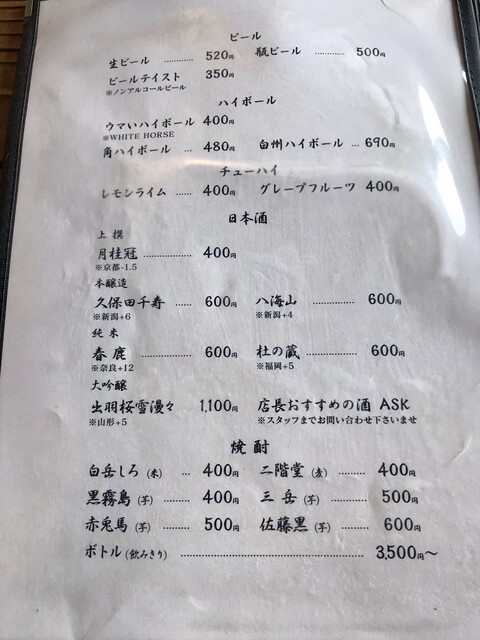 ビール
生ビール ………… 520円 瓶ビール ………… 500円
ビールテイスト 350円
※ノンアルコールビール
ハイボール
ウマいハイボール 400円
※WHITE HORSE
角ハイボール … 480円 白州ハイボール … 690円
チューハイ
レモンライム …… 400円 グレープフルーツ 400円
日本酒
上撰
月桂冠 ……………… 400円
※京都-1.5
本醸造
久保田千寿 …… 600円 八海山 ………… 600円
※新潟+6 ※新潟+4
純米
春鹿 ……………… 600円 杜の蔵 ……………… 600円
※奈良+12 ※福岡+5
大吟醸
出羽桜雪漫々 1,100円 店長おすすめの酒 ASK
※山形+5 ※スタッフまでお問い合わせ下さいませ
焼酎
白岳しろ(米) … 400円 二階堂(麦) ……… 400円
黒霧島(芋) ……… 400円 三岳(芋) ………… 500円
赤兎馬(芋) ……… 500円 佐藤黒(芋) ……… 600円
ボトル(飲みきり) ……………………………… 3,500円～